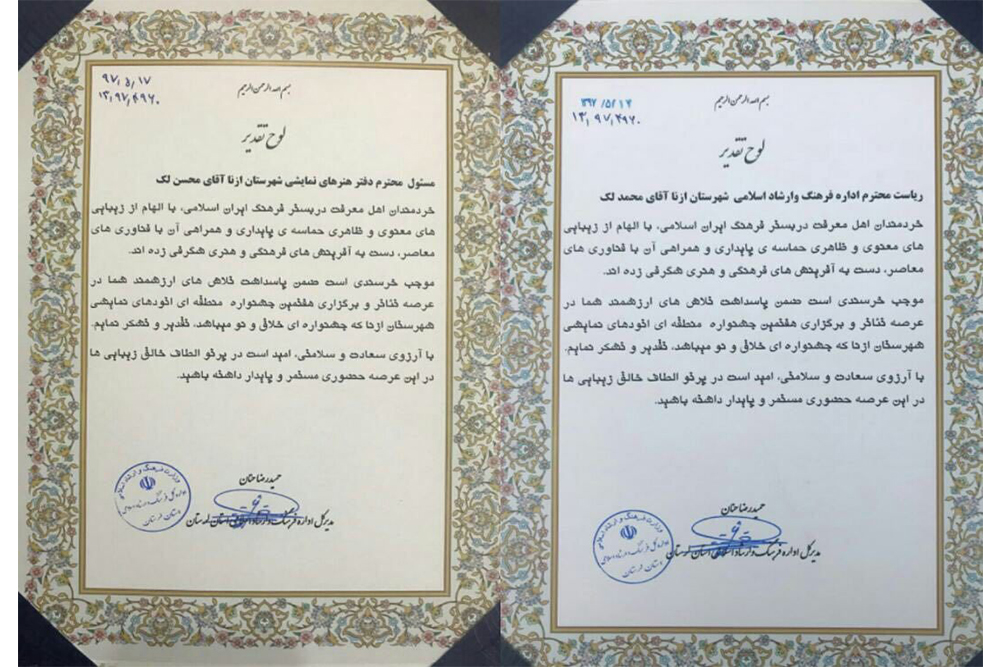 ۹۷/۵/۱۷
۱۳/۹۷/۴۹۶۰
بسم الله الرحمن الرحیم
لوح تقدیر
مسئول محترم دفتر هنرهای نمایشی شهرستان ازنا آقای محسن لک
خردمندان اهل معرفت دربستر فرهنگ ایران اسلامی، با الهام از زیبایی
های معنوی و ظاهری حماسه ی پایداری و همراهی آن با فناوری های
معاصر، دست به آفرینش های فرهنگی و هنری شگرفی زده اند.
موجب خرسندی است ضمن پاسداشت تلاش های ارزشمند شما در
عرصه تئاتر و برگزاری هفتمین جشنواره منطقه ای اتودهای نمایشی
شهرستان ازنا که جشنواره ای خلاق و نو میباشد، تقدیر و تشکر نمایم.
با آرزوی سعادت و سلامتی، امید است در پرتو الطاف خالق زیبایی ها
در این عرصه حضوری مستمر و پایدار داشته باشید.
حمیدرضا حنان
مدیرکل اداره فرهنگ و ارشاد اسلامی استان لرستان
وزارت فرهنگ و ارشاد اسلامی
اداره کل فرهنگ و ارشاد اسلامی
استان لرستان
۱۳۹۷/۵/۱۷
۱۳/۹۷/۴۹۶۰
بسم الله الرحمن الرحیم
لوح تقدیر
ریاست محترم اداره فرهنگ وارشاد اسلامی شهرستان ازنا آقای محمد لک
خردمندان اهل معرفت دربستر فرهنگ ایران اسلامی، با الهام از زیبایی
های معنوی و ظاهری حماسه ی پایداری و همراهی آن با فناوری های
معاصر، دست به آفرینش های فرهنگی و هنری شگرفی زده اند.
موجب خرسندی است ضمن پاسداشت تلاش های ارزشمند شما در
عرصه تئاتر و برگزاری هفتمین جشنواره منطقه ای اتودهای نمایشی
شهرستان ازنا که جشنواره ای خلاق و نو میباشد، تقدیر و تشکر نمایم.
با آرزوی سعادت و سلامتی، امید است در پرتو الطاف خالق زیبایی ها
در این عرصه حضوری مستمر و پایدار داشته باشید.
حمیدرضا حنان
مدیرکل اداره فرهنگ و ارشاد اسلامی استان لرستان
وزارت فرهنگ و ارشاد اسلامی
اداره کل فرهنگ و ارشاد اسلامی
استان لرستان